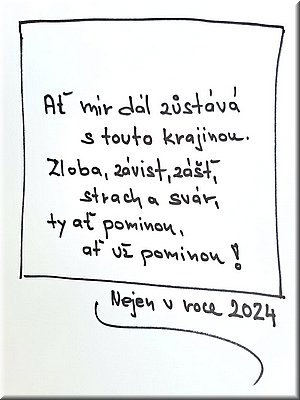 Ať mir dál zůstává
s touto krajinou.
Zloba, závist, zášť,
strach a svár,
ty ať pominou,
ať už pominou!
Nejen v roce 2024